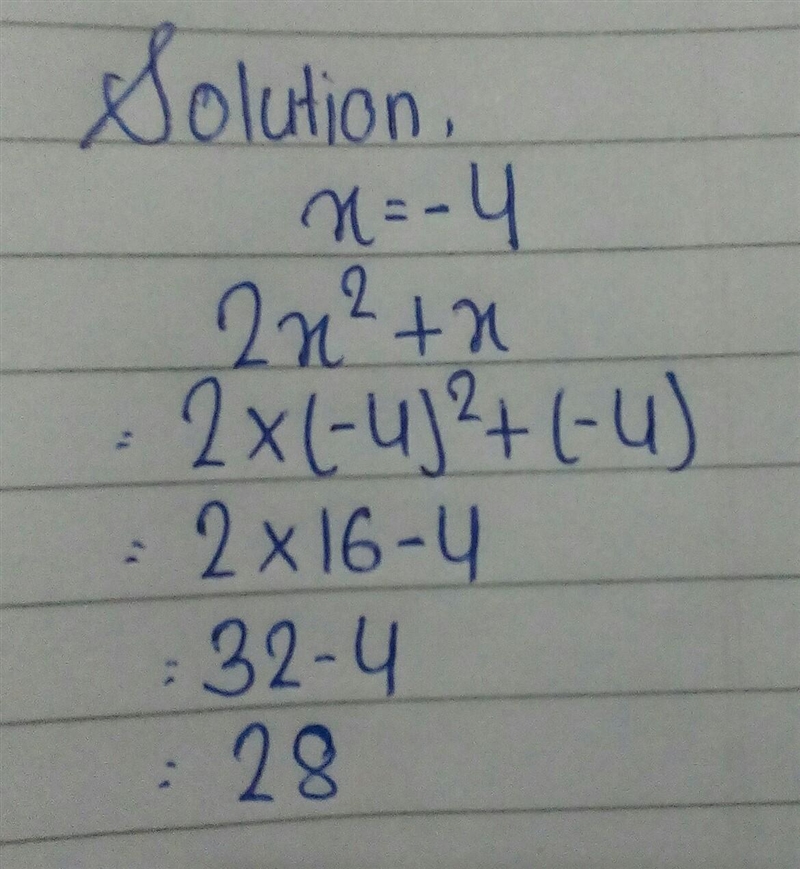 Solution.
x = -4
2x² + x
= 2 × (-4)² + (-4)
= 2 × 16 - 4
= 32 - 4
= 28